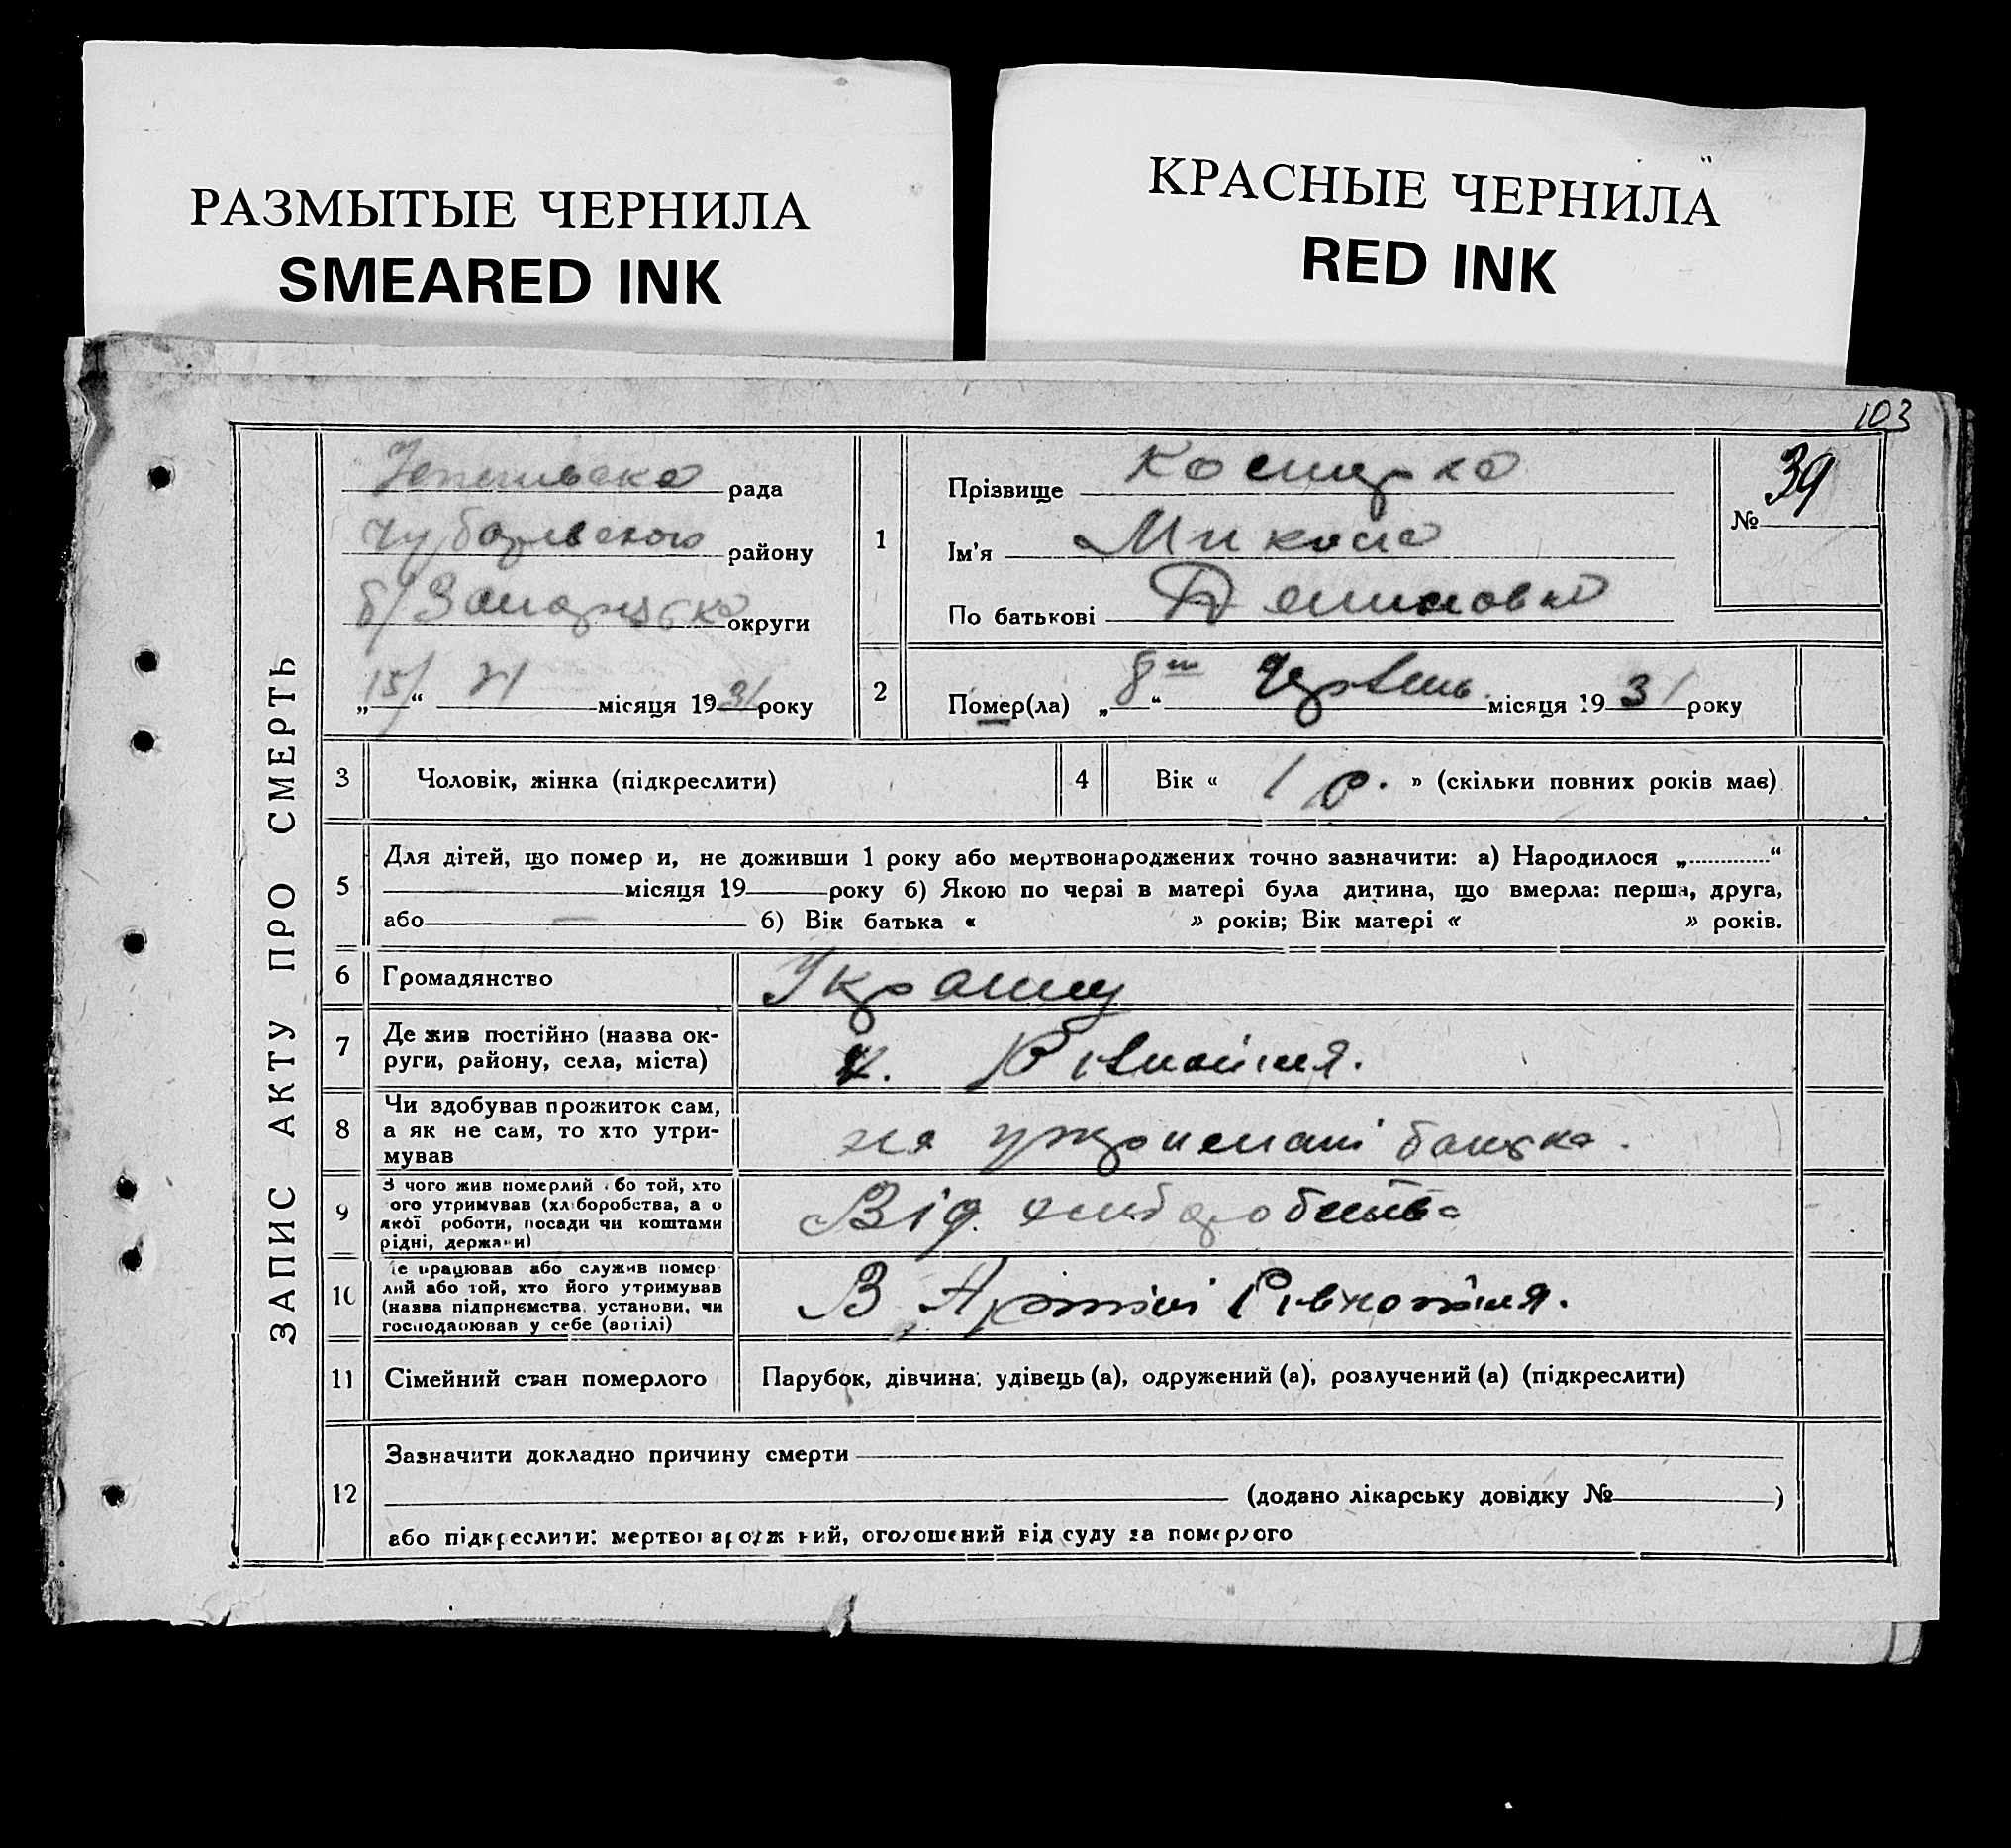 РАЗМЫТЫЕ ЧЕРНИЛА
SMEARED INK
КРАСНЫЕ ЧЕРНИЛА
RED INK
103
ЗАПИС АКТУ ПРО СМЕРТЬ
рада
району
б/ округи
„15/“ VI місяця 1931 року
1
Прізвище
Ім'я Микола
По батькові
№ 39
2
Помер(ла) „8“ Червень місяця 1931 року
3
Чоловік, жінка (підкреслити)
4
Вік « 1 р. » (скільки повних років має)
5
Для дітей, що помер и, не доживши 1 року або мертвонароджених точно зазначити: а) Народилося „ “
місяця 19 року б) Якою по черзі в матері була дитина, що вмерла: перша, друга,
або — б) Вік батька « » років; Вік матері « » років.
6
Громадянство
7
Де жив постійно (назва ок-
руги, району, села, міста)
8
Чи здобував прожиток сам,
а як не сам, то хто утри-
мував
на батька.
9
З чого жив померлий або той, хто
ого утримував (хліборобства, а о
якої роботи, посади чи коштами
рідні, держави)
Від
10
е працював або служив помер
лий або той, хто його утримував
(назва підприємства, установи, чи
господарював у себе (артілі)
В Артілі Рівнопілля.
11
Сімейний стан померлого
Парубок, дівчина; удівець (а), одружений (а), розлучений (а) (підкреслити)
12
Зазначити докладно причину смерти
(додано лікарську довідку № )
або підкреслити: мертвонароджений, оголошений від суду за померлого